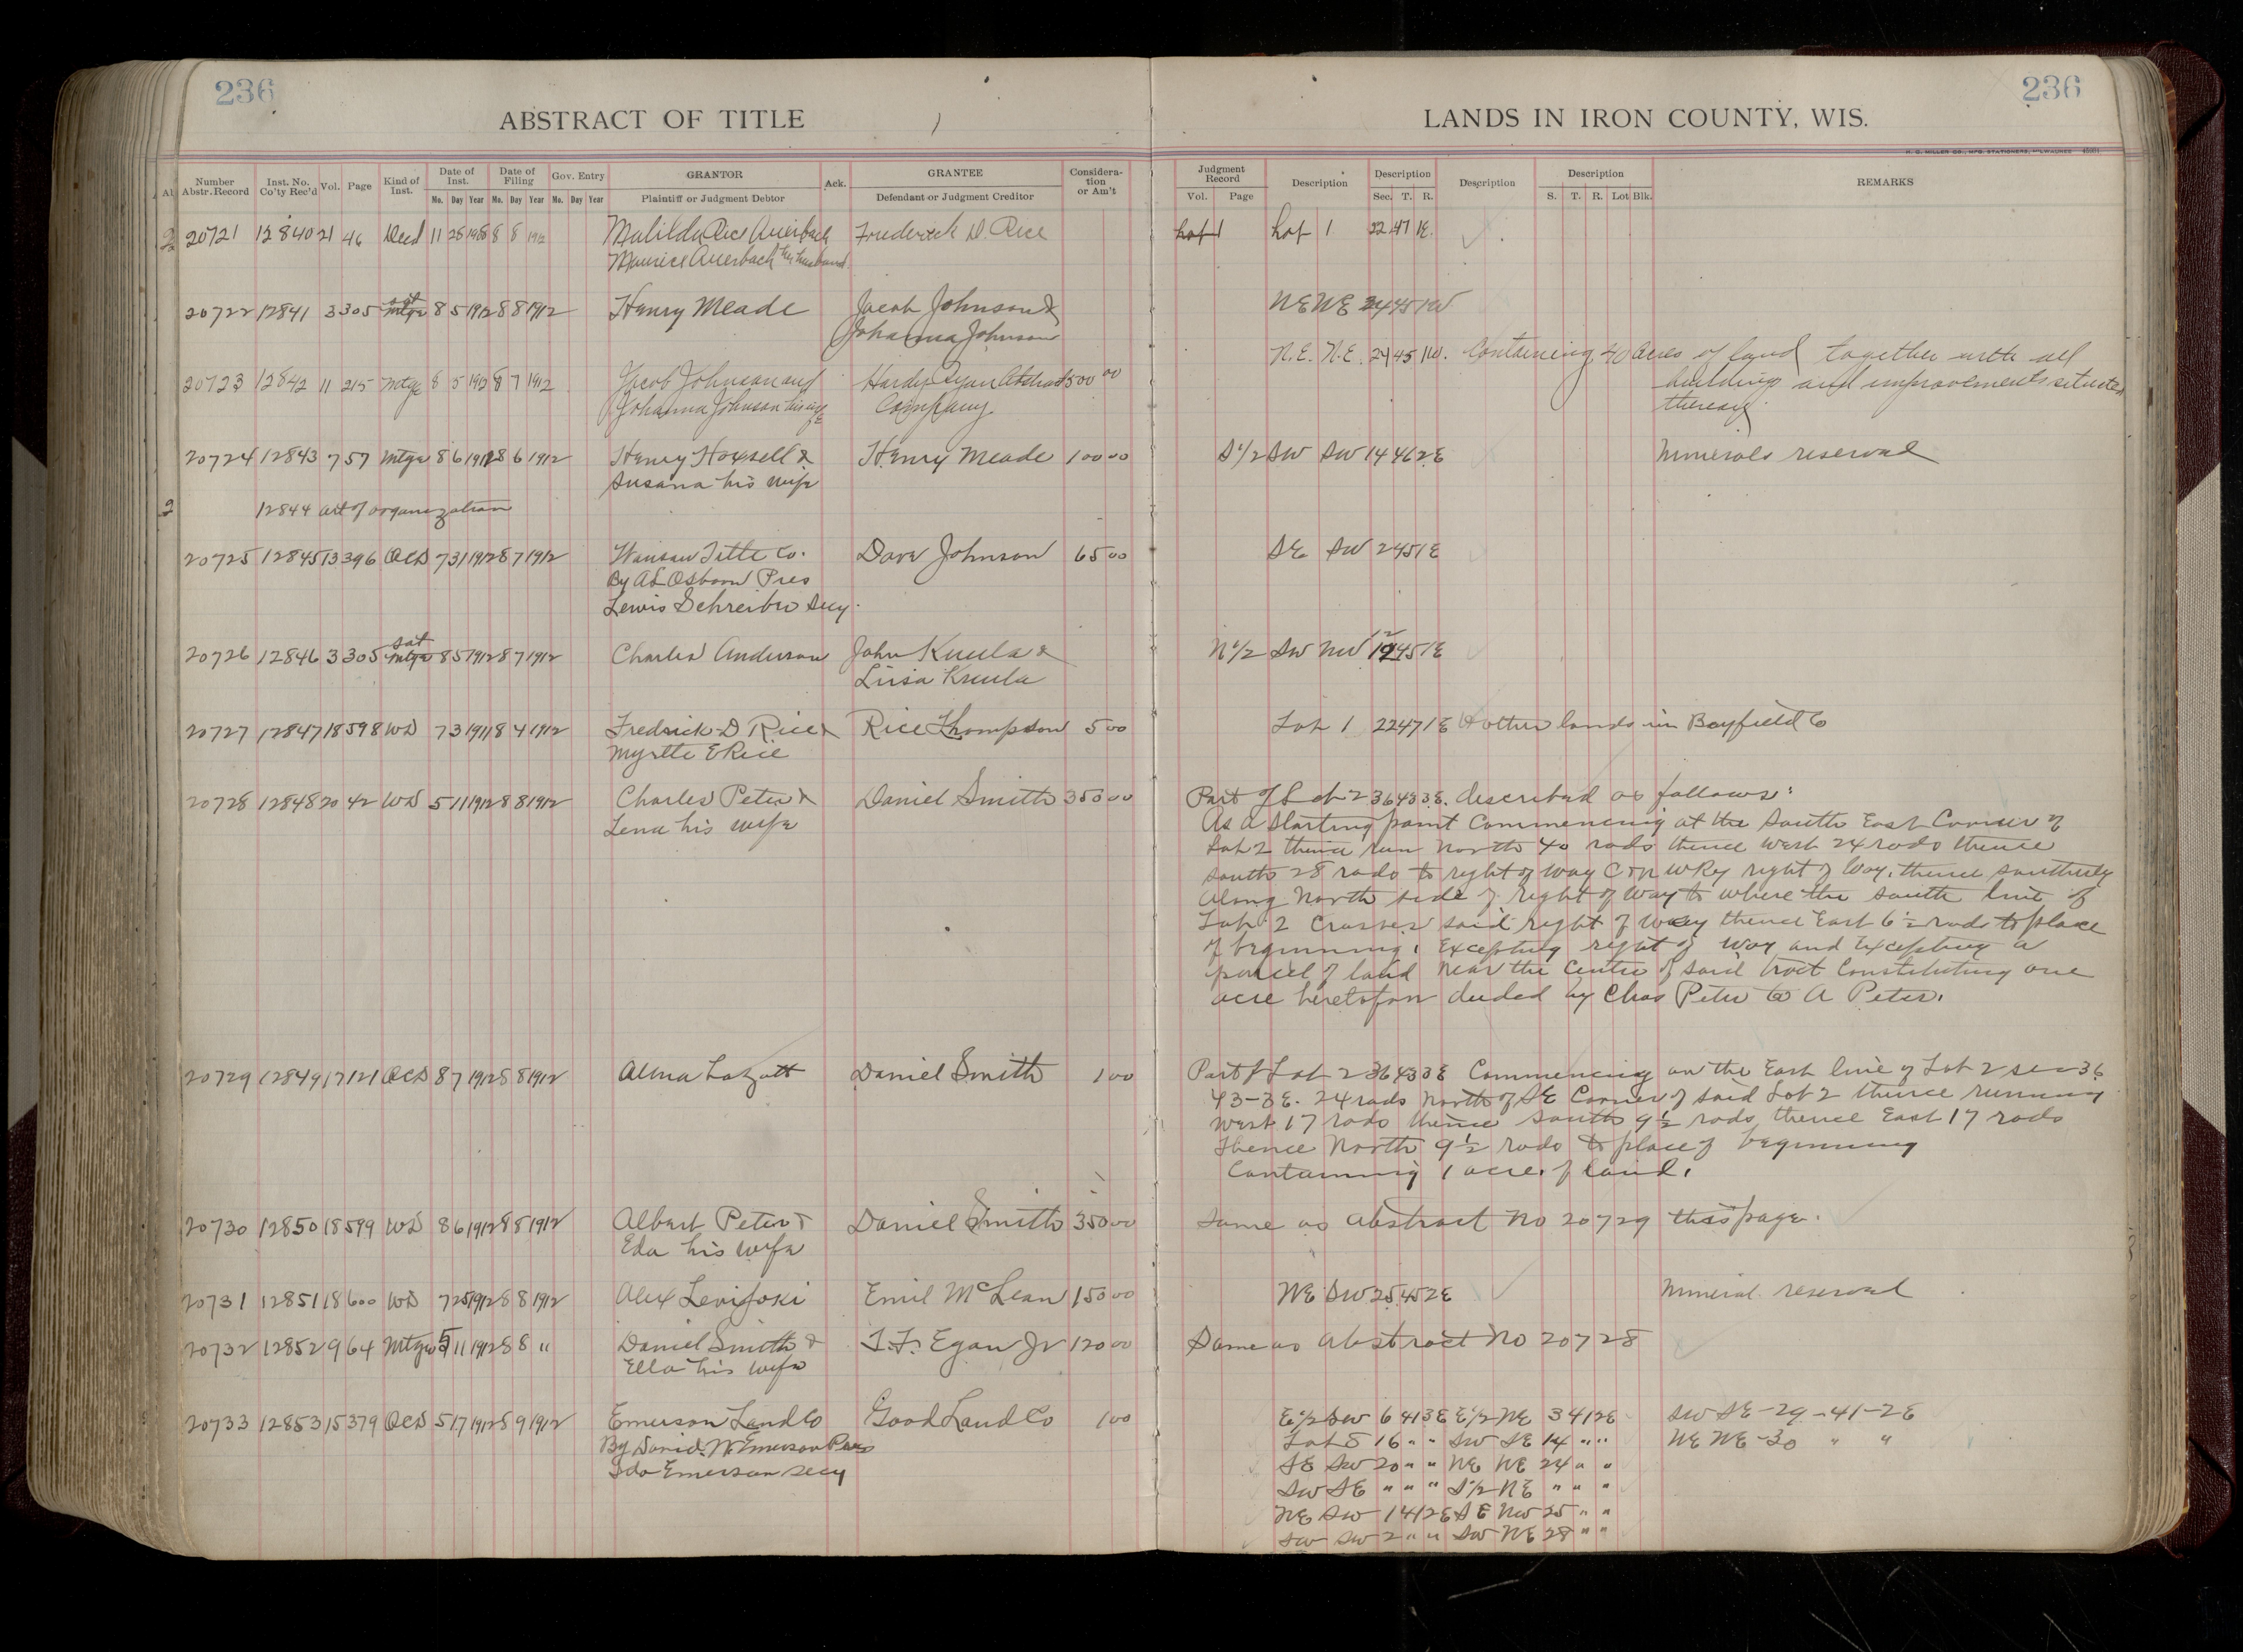 236
236
ABSTRACT OF TITLE
LANDS IN IRON COUNTY, WIS.
H. C. MILLER CO., MFG. STATIONERS, MILWAUKEE
Number Abstr. Record Inst. No. Co'ty Rec'd Vol. Page Kind of Inst. Date of Inst. Mo. Day Year Date of Filing Mo. Day Year Gov. Entry Mo. Day Year GRANTOR Plaintiff or Judgment Debtor Ack. GRANTEE Defendant or Judgment Creditor Considera-tion or Am't Judgment Record Vol. Page Description Description Sec. T. R. Description Description S. T. R. Lot Blk. REMARKS
20721 12840 21 46 Deed 11 25 8 8 1912 Matilda Rice Auerbach Frederick D. Rice Lot 1 Lot 1 22 47 1E.
Maurice Auerbach her husband.
20722 12841 3 305 sat mtge 8 5 1912 8 8 1912 Henry Meade Jacob Johnson & NE NE 24 45 1W
Johanna Johnson
20723 12842 11 215 mtge 8 5 1912 8 7 1912 Jacob Johnson and Hardy Ryan Abstract 500 00 N.E. N.E. 24 45 1W. Containing 40 Acres of land together with all
Johanna Johnson his wife Company. buildings and improvements situated
thereon.
20724 12843 7 57 Mtge 8 6 1912 8 6 1912 Henry Hoxsell & Henry Meade 100 00 S1/2 SW SW 14 46 2E Minerals reserved
Susana his wife
12844 art of organization
20725 12845 13 396 QCD 7 31 1912 8 7 1912 Wausau Title Co. Dave Johnson 65 00 SE SW 2 45 1E
By AL Osborn Pres
Lewis Schreiber Secy.
20726 12846 3 305 sat mtge 8 5 1912 8 7 1912 Charles Anderson John Kuula & N1/2 SW NW 12 45 1E
Liisa Kuula
20727 12847 18 598 WD 7 3 1911 8 4 1912 Fredrick D Rice & Rice Thompson 5 00 Lot 1 22 47 1E & other lands in Bayfield Co
Myrtle E Rice
20728 12848 20 42 WD 5 11 1912 8 8 1912 Charles Peter & Daniel Smith 350 00 Part of Lot 2 36 43 3E. described as follows:
Lena his wife As a starting point Commencing at the South East Corner of
Lot 2 thence run North 40 rods thence West 24 rods thence
South 28 rods to right of way C & N W Ry right of Way, thence southerly
along North side of right of Way to where the south line of
Lot 2 Crosses said right of way thence East 6 1/2 rods to place
of beginning, Excepting right of way and Excepting a
parcel of land Near the Center of said tract Constituting one
acre heretofore deeded by Chas Peter to A Peter.
20729 12849 17 121 QCD 8 7 1912 8 8 1912 Alma Daniel Smith 1 00 Part of Lot 2 36 43 3E Commencing on the East line of Lot 2 sec 36
43-3E. 24 rods North of SE Corner of said Lot 2 thence running
West 17 rods thence South 9 1/2 rods thence East 17 rods
thence North 9 1/2 rods to place of beginning
Containing 1 acre of land.
20730 12850 18 599 WD 8 6 1912 8 8 1912 Albert Peter & Daniel Smith 350 00 Same as Abstract No 20729 this page.
Eda his wife
20731 12851 18 600 WD 7 25 1912 8 8 1912 Alex Emil McLean 150 00 NE SW 25 45 2E Mineral reserved
20732 12852 9 64 Mtge 5 11 1912 8 8 " Daniel Smith & T.F. Egan Jr 120 00 Same as Abstract No 20728
Ella his wife
20733 12853 15 379 QCD 5 17 1912 8 9 1912 Emerson Land Co Good Land Co 1 00 E1/2 SW 6 41 3E E1/2 NE 3 41 2E SW SE-29-41-2E
By David W. Emerson Pres Lot 8 16 " " SW SE 14 " " NE NE-30 " "
Ida Emerson Secy SE SW 20 " " NE NE 24 " "
SW SE " " " S1/2 NE " " "
NE SW 1 41 2E SE NW 25 " "
SW SW 2 " " SW NE 28 " "